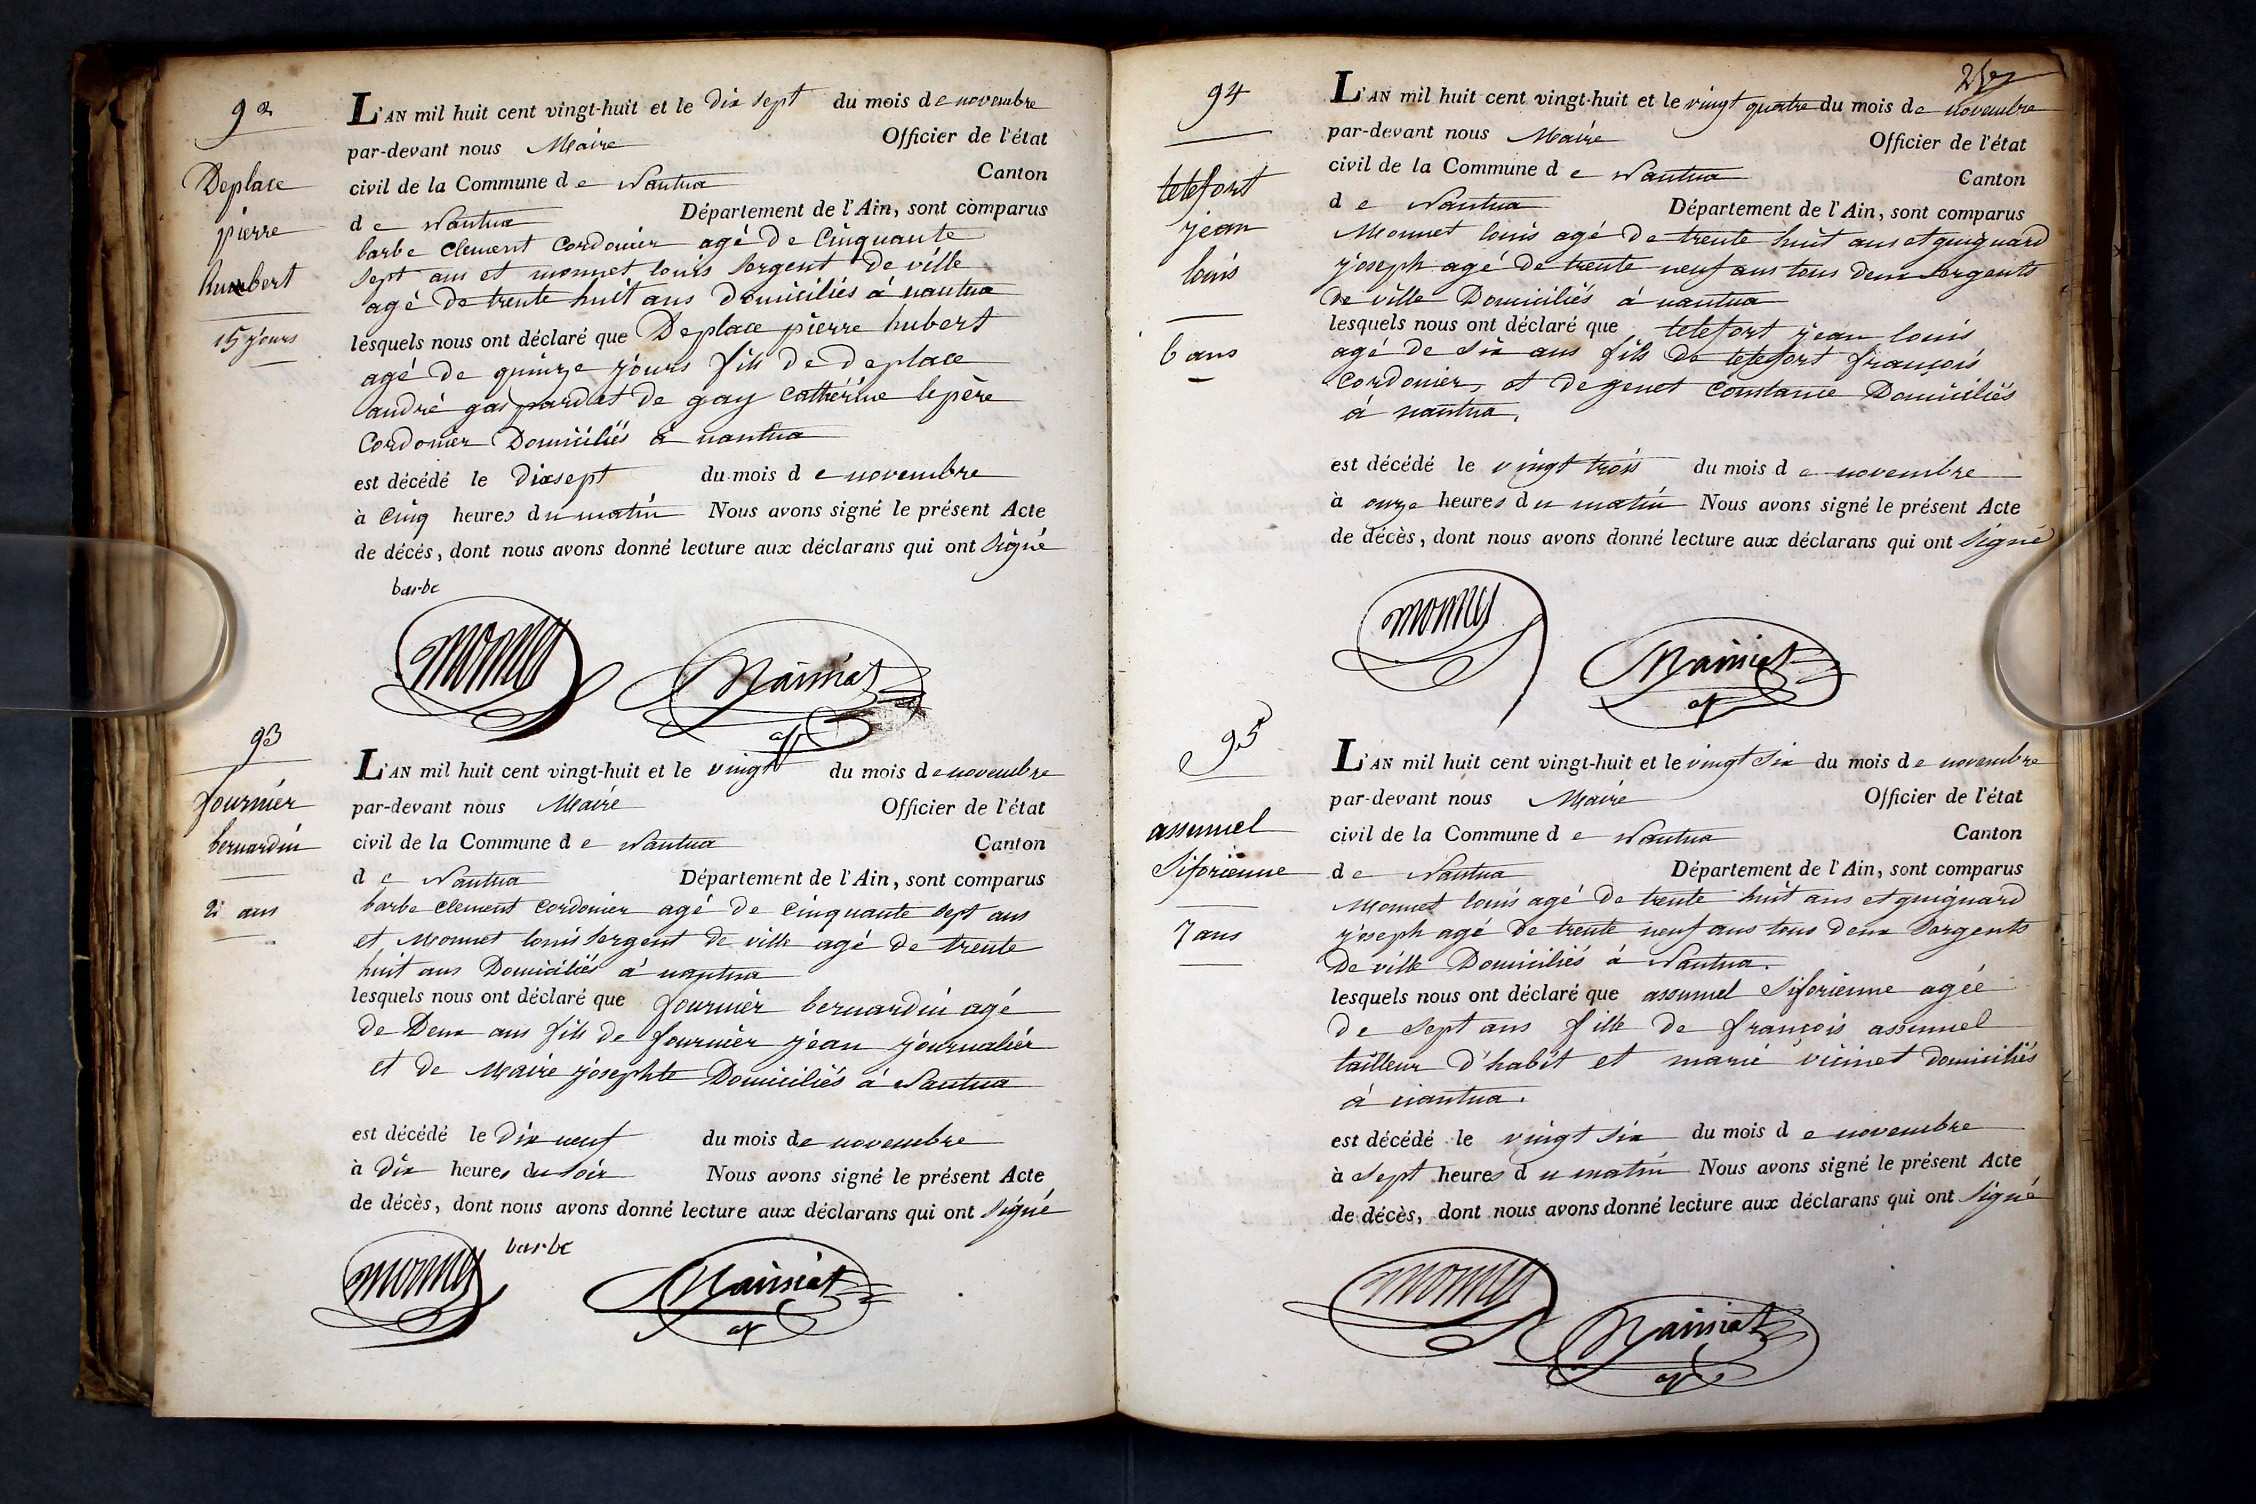 92
Deplace
pierre
humbert
15 jours
L'AN mil huit cent vingt-huit et le dix sept du mois de novembre
par-devant nous Maire Officier de l'état
civil de la Commune de Nantua Canton
de Nantua Département de l'Ain, sont comparus
barbe clement cordonier agé de cinquante
sept ans et monnet louis sergent de ville
agé de trente huit ans Domiciliés à nantua
lesquels nous ont déclaré que Deplace pierre hubert
agé de quinze jours fils de deplace
andré gaspard et de gay cathérine le père
cordonier Domiciliés à nantua
est décédé le dixsept du mois de novembre
à cinq heures du matin Nous avons signé le présent Acte
de décès, dont nous avons donné lecture aux déclarans qui ont signé
barbe
monnet Mainiat
93
fournier
bernardin
2 ans
L'AN mil huit cent vingt-huit et le vingt du mois de novembre
par-devant nous Maire Officier de l'état
civil de la Commune de Nantua Canton
de Nantua Département de l'Ain, sont comparus
barbe clement cordonier agé de cinquante sept ans
et Monnet louis sergent de ville agé de trente
huit ans Domiciliés à nantua
lesquels nous ont déclaré que fournier bernardin agé
de Deux ans fils de fournier jéan journaliér
et de Maire josephte Domiciliés à Nantua
est décédé le dix neuf du mois de novembre
à dix heures du soir Nous avons signé le présent Acte
de décès, dont nous avons donné lecture aux déclarans qui ont signé
monnet barbe Mainiat
94
tetefort
jean
louis
6 ans
L'AN mil huit cent vingt-huit et le vingt quatre du mois de novembre
par-devant nous Maire Officier de l'état
civil de la Commune de Nantua Canton
de Nantua Département de l'Ain, sont comparus
Monnet louis agé de trente huit ans et guignard
joseph agé de trente neuf ans tous deux sergents
de ville Domiciliés à nantua
lesquels nous ont déclaré que tetefort jean louis
agé de six ans fils de tetefort françois
cordonier, et de genet constance Domiciliés
à nantua.
est décédé le vingt trois du mois de novembre
à onze heures du matin Nous avons signé le présent Acte
de décès, dont nous avons donné lecture aux déclarans qui ont signé
monnet Mainiat
95
assumel
Siforienne
7 ans
L'AN mil huit cent vingt-huit et le vingt six du mois de novembre
par-devant nous Maire Officier de l'état
civil de la Commune de Nantua Canton
de Nantua Département de l'Ain, sont comparus
Monnet louis agé de trente huit ans et guignard
joseph agé de trente neuf ans tous deux sergents
De ville Domiciliés à Nantua.
lesquels nous ont déclaré que assumel siforienne agée
de sept ans fille de françois assumel
tailleur d'habit et marie vicinet domiciliés
à nantua.
est décédé le vingt six du mois de novembre
à sept heures du matin Nous avons signé le présent Acte
de décès, dont nous avons donné lecture aux déclarans qui ont signé
monnet Mainiat